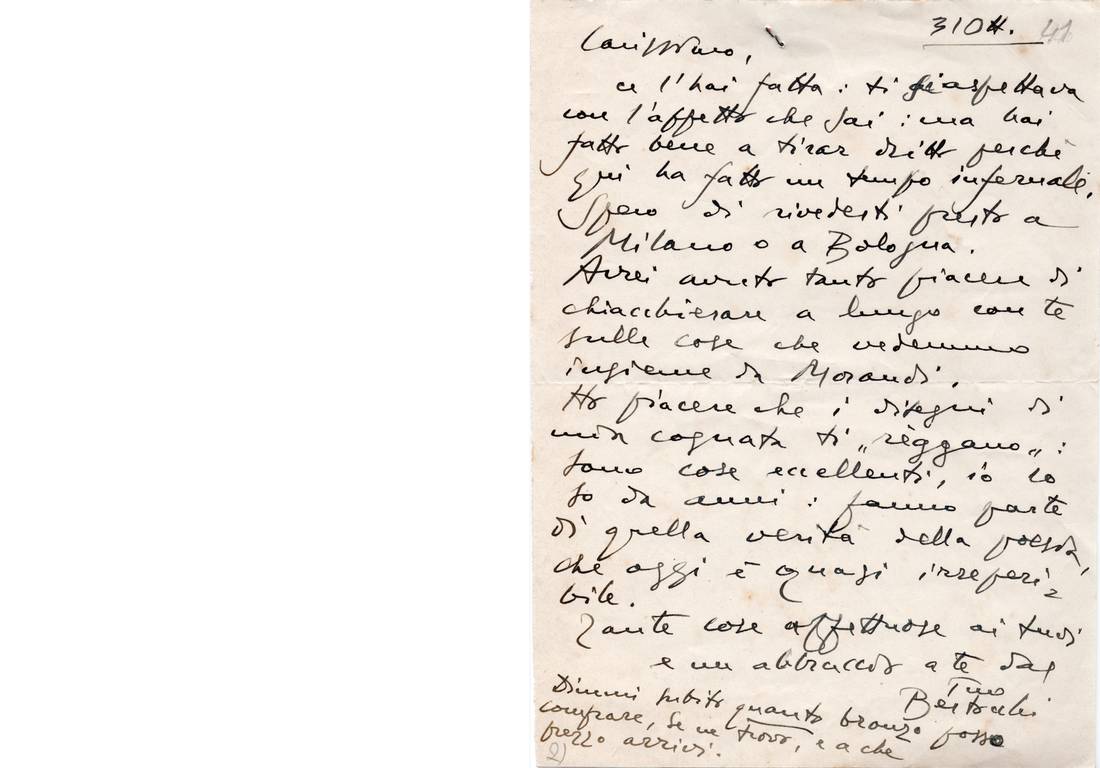 31 Ott. 41
Carissimo,
ce l'hai fatta : ti aspettava
con l'affetto che sai : ma hai
fatto bene a tirar dritto perchè
qui ha fatto un tempo infernale.
Spero di rivederti presto a
Milano o a Bologna.
Avrei avuto tanto piacere di
chiacchierare a lungo con te
sulle cose che vedemmo
insieme da Morandi.
Ho piacere che i disegni di
mia cognata ti „règgano„ :
sono cose eccellenti, io lo
so da anni : fanno parte
di quella verità della poesia,
che oggi è quasi irreperi=
bile.
Tante cose affettuose ai tuoi
e un abbraccio a te dal
Tuo
Bertocchi
Dimmi subito quanto bronzo posso
comprare, se ne trovo, e a che
prezzo arrivi.
2)